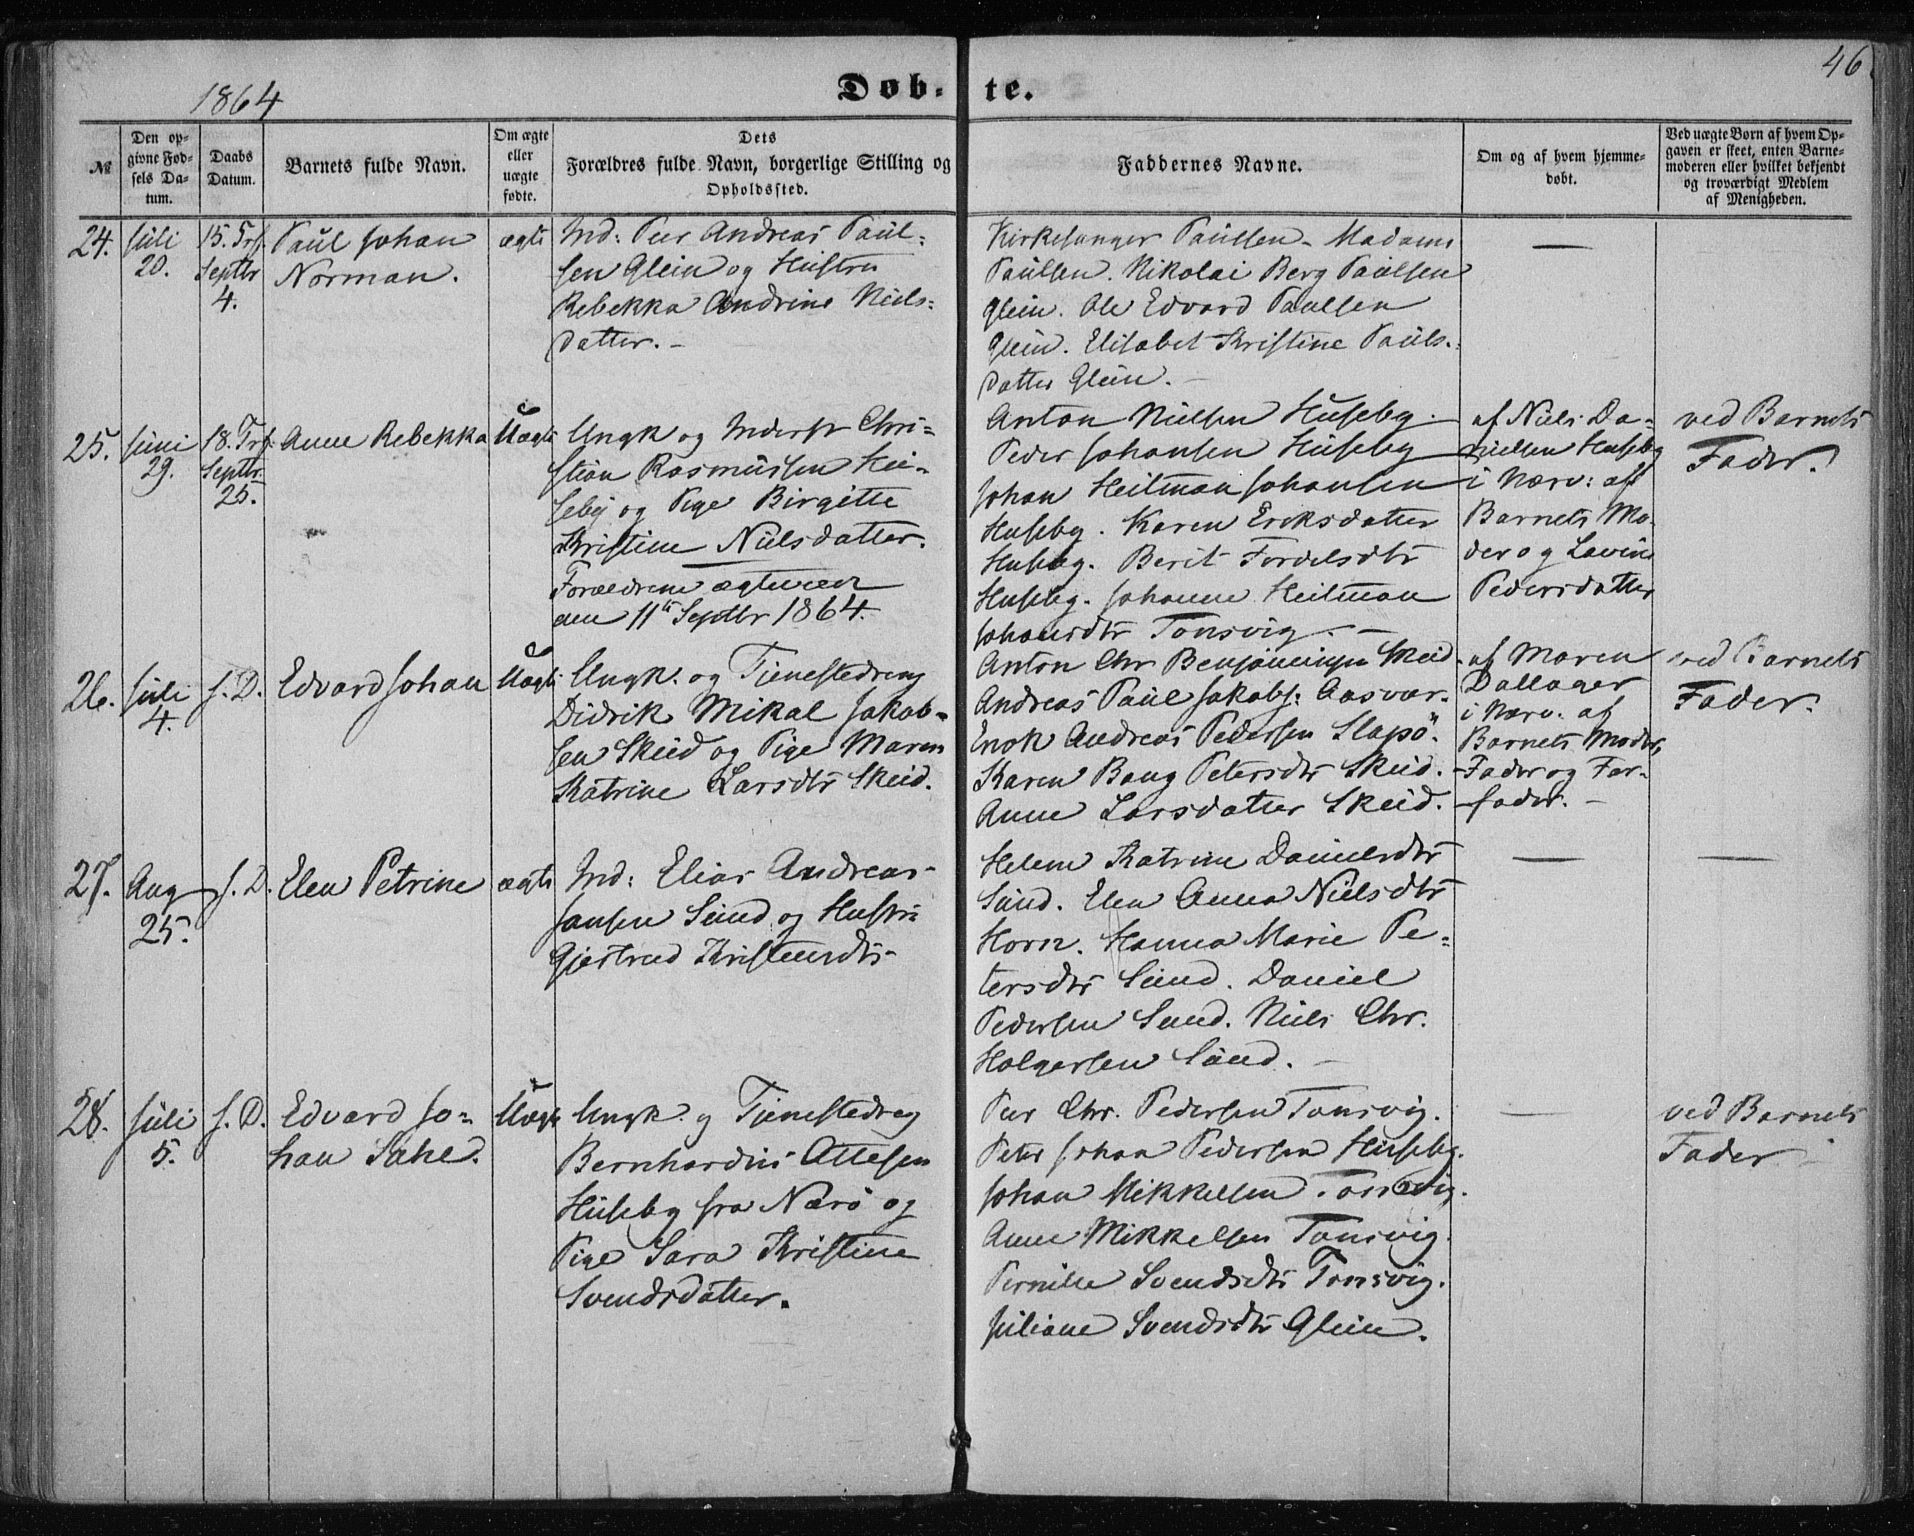 46
1864
Døb-
te.
№
Den op-
givne Fød-
sels Da-
tum.
Daabs
Datum.
Barnets fulde Navn.
Om ægte
eller
uægte
fødte.
Dets
Forældres fulde Navn, borgerlige Stilling og
Opholdssted.
Faddernes Navne.
Om og af hvem hjemme-
døbt.
Ved uægte Børn af hvem Op-
gaven er skeet, enten Barne-
moderen eller hvilket bekjendt
og troværdigt Medlem
af Menigheden.
24.
Juli
20.
15. Trf.
Septbr
4.
Paul Johan
Norman.
ægte
Ind: Peer Andreas Paul-
sen Glein og Hustru
Rebekka Andrine Niels-
datter. -
Kirkesanger Paulsen - Madame
Paulsen. Nikolai Berg Paulsen
Glein. Ole Edvard Paulsen
Glein. Elisabet Kristine Pauls-
datter Glein. -
—
25.
Juni
29.
18. Trf.
Septbr
25.
Anne Rebekka
Uægte
Ungk og Inderst Chri-
stian Rasmussen Hu-
seby og Pige Birgitte
Kristine Nielsdatter.
Forældrene ægteviet
den 11te Septbr 1864.
Anton Nielsen Huseby.
Peder Johansen Huseby
Johan Heitman Johansen
Huseby. Karen Eriksdatter
Huseby. Berit Fordelsdtr
Huseby. Johanna Heitman
Johansdtr Tonsvig. -
af Niels Da-
nielsen Huseby
i Nærv: af
Barnets Mo-
der og Lavine
Pedersdatter
ved Barnets
Fader.
26.
Juli
4.
s. D.
Edvard Johan
Uægte
Ungk. og Tjenestedreng
Didrik Mikal Jakob-
sen Skeid og Pige Maren
Katrine Larsdtr Skeid.
Anton Chr Benjaminsen Skeid.
Andreas Paul Jakobs: Aasvær.
Enok Andreas Pedersen Slapö.
Karen Bang Petersdtr Skeid.
Anne Larsdatter Skeid.
af Maren
Dallager
i Nærv. af
Barnets Moder,
Fader og Far-
fader. -
ved Barnets
Fader.
27.
Aug
25.
s. D.
Elen Petrine
ægte
Ind: Elias Andreas
Jansen Sund og Hustru
Gjertrud Kristensdtr
Helene Katrine Danielsdtr
Sund. Elen Anna Nielsdtr
Horn. Hanna Marie Pe-
tersdtr Sund. Daniel
Pedersen Sund. Niels Chr.
Holgersen Sund. -
—
—
28.
Juli
5.
s. D.
Edvard Jo-
han Sahl.
Uægte
Ungk. og Tjenestedreng
Bernhardus Ottesen
Huseby fra Nærö og
Pige Sara Kristine
Svendsdatter.
Peer Chr. Pedersen Tonsvig.
Peter Johan Pedersen Huseby.
Johan Mikkelsen Tonsvig.
Anne Mikkelsen Tonsvig.
Pernille Svendsdtr Tonsvig.
Juliane Svendsdtr Glein.
—
ved Barnets
Fader